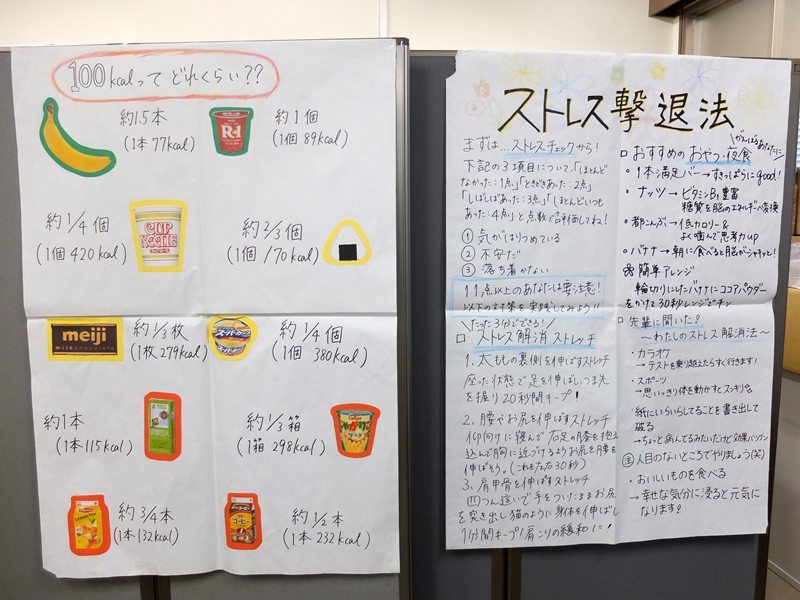 100kcalって どれくらい??
約1.5本
(1本 77kcal)
R-1
約1個
(1個 89kcal)
約1/4個
(1個 420kcal)
CUP NOODLE
約2/3個
(1個 170kcal)
meiji
milk chocolate
約1/3枚
(1枚 279kcal)
スーパーカップ
約1/4個
(1個 380kcal)
約1本
(1本 115kcal)
約1/3箱
(1箱 298kcal)
じゃがりこ
サラダ
約3/4本
(1本 132kcal)
コーヒー
約1/2本
(1本 232kcal)
ストレス撃退法
まずは…ストレスチェックから!
下記の3項目について、「ほとんど
なかった:1点」「ときどきあった:2点」
「しばしばあった:3点」「ほとんどいつも
あった:4点」と点数で評価してね!
① 気がはりつめている
② 不安だ
③ 落ち着かない
11点以上のあなたは要注意!
以下の対策を実践してみよう!!
\たった3分でできる!/
□ ストレス解消ストレッチ
1. 太ももの裏側を伸ばすストレッチ
座った状態で足を伸ばしつま先
を握り20秒間キープ!
2. 腰やお尻を伸ばすストレッチ
仰向けに寝んで右足の膝を抱え
込んで胸に近づけるようお尻と腰を
伸ばそう。(これを左右30秒)
3. 肩甲骨を伸ばすストレッチ
四つん這いで手をついたままお尻
を突き出し猫のように身体を伸ばし
1分間キープ!肩こりの緩和に!
\がんばるあなたに/
□ おすすめのおやつ・夜食
・1本満足バー→すきっぱらにgood!
・ナッツ→ビタミンB1豊富
糖質を脳のエネルギーへ変換
・都こんぶ→低カロリー&
よく噛んで思考力up
・バナナ→朝に食べると脳がシャキッと!
※簡単アレンジ
輪切りにしたバナナにココアパウダー
をかけて30秒レンジでチン
□ 先輩に聞いた!
〜わたしのストレス解消法〜
・カラオケ
→テストを乗り越えたらすぐ行きます!
・スポーツ
→思いっきり体を動かすとスッキリ
・紙にいらいらしてることを書き出して
破る
→ちょっと病んでるみたいだけど効果バツグン
注 人目のないところでやりましょう(笑)
・おいしいものを食べる
→幸せな気分に浸ると元気に
なります!